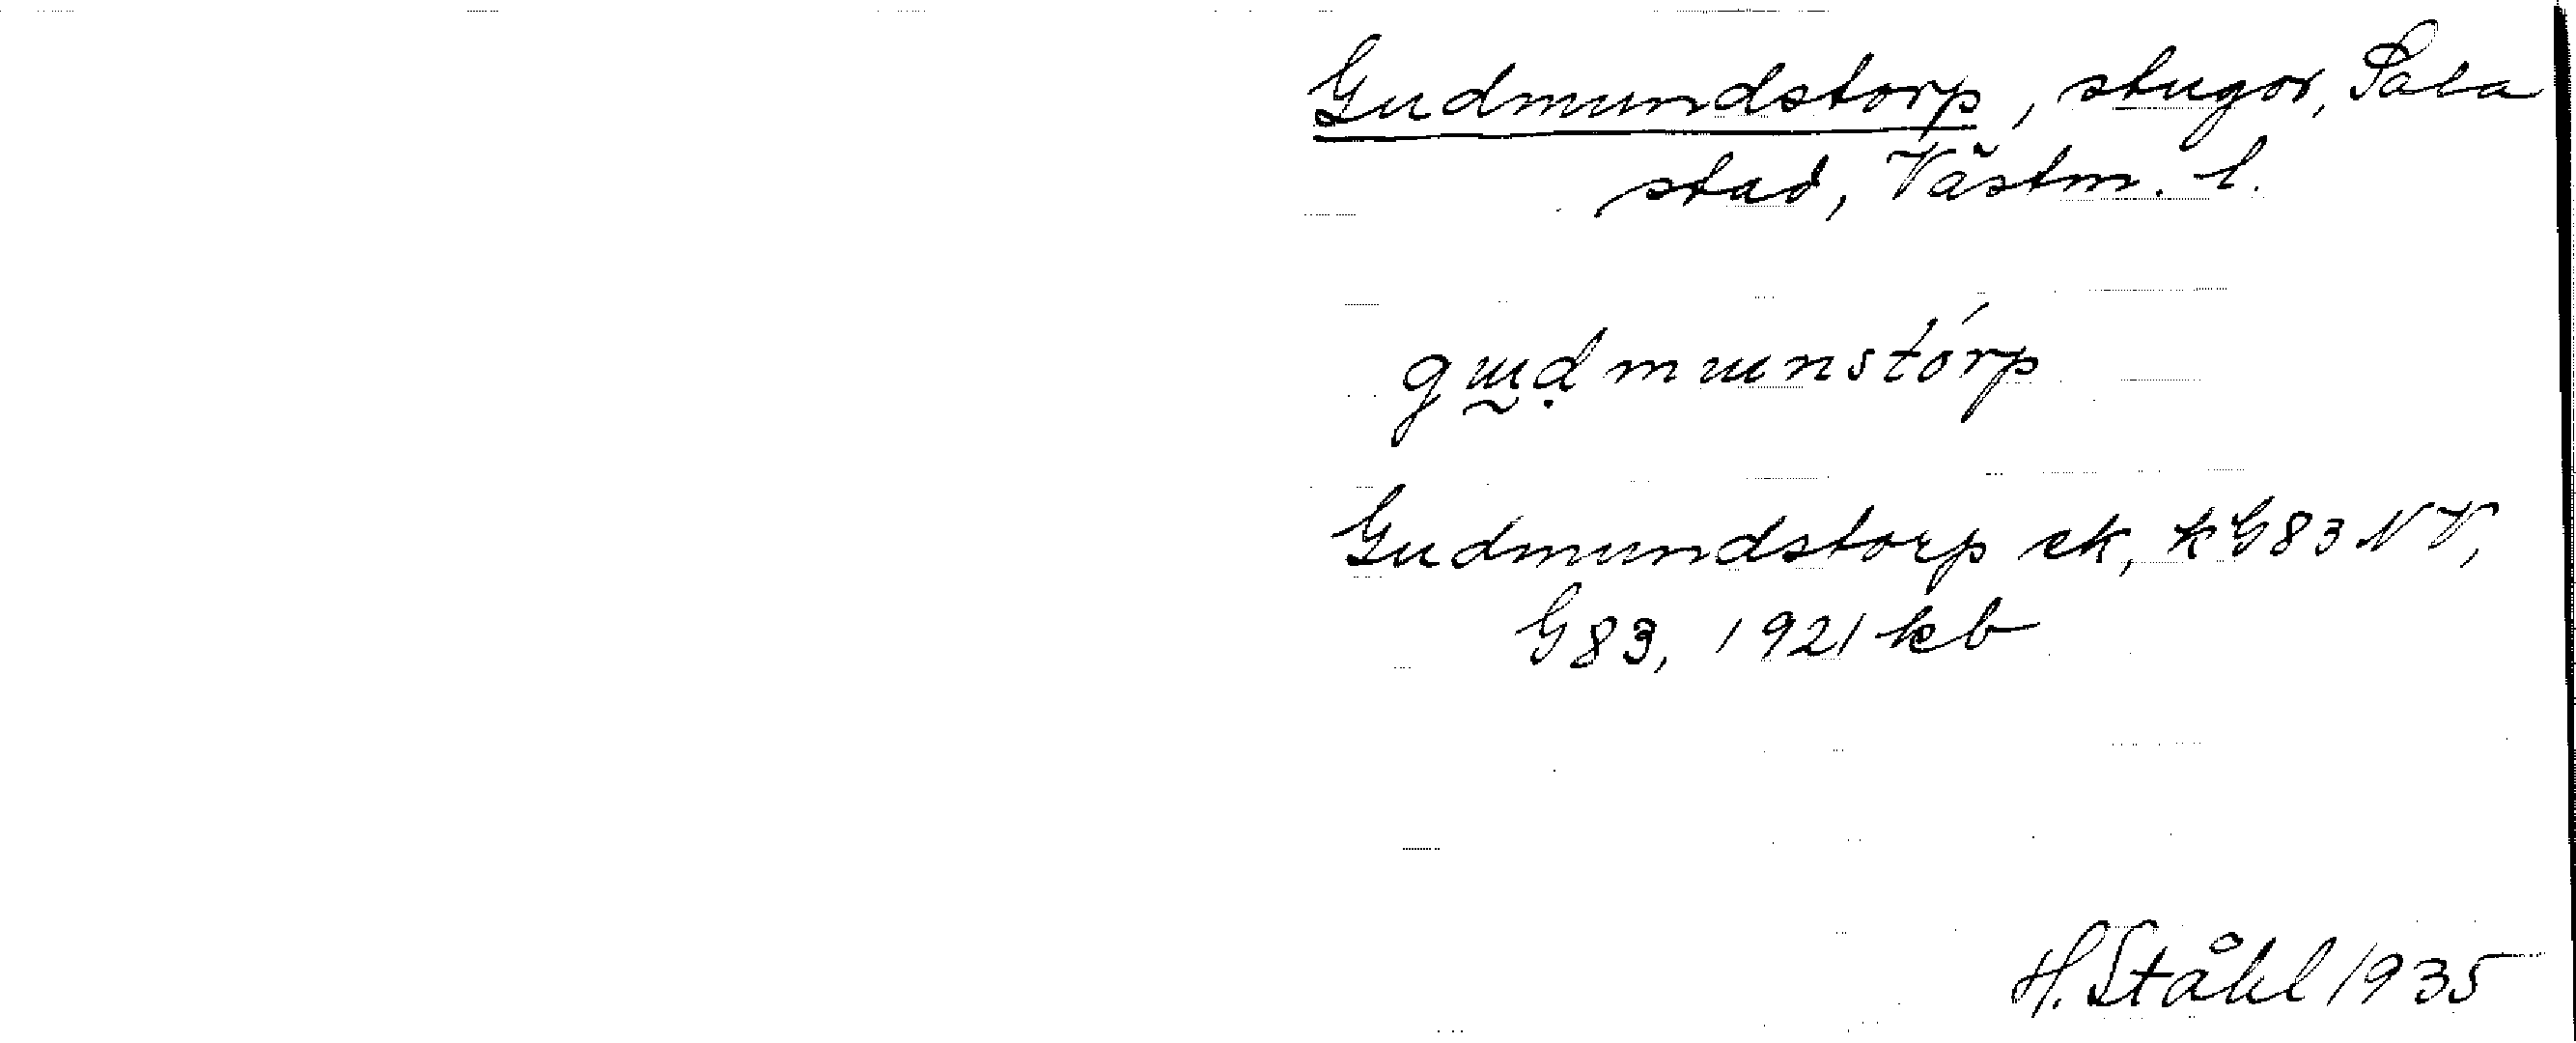 Gudmundstorp, stugor, Sala
stad, Västm. l.
gɯ̰ḍmɯnstórp
Gudmundstorp ek, kG83NV,
G83, 1921 kb
H. Ståhl 1935